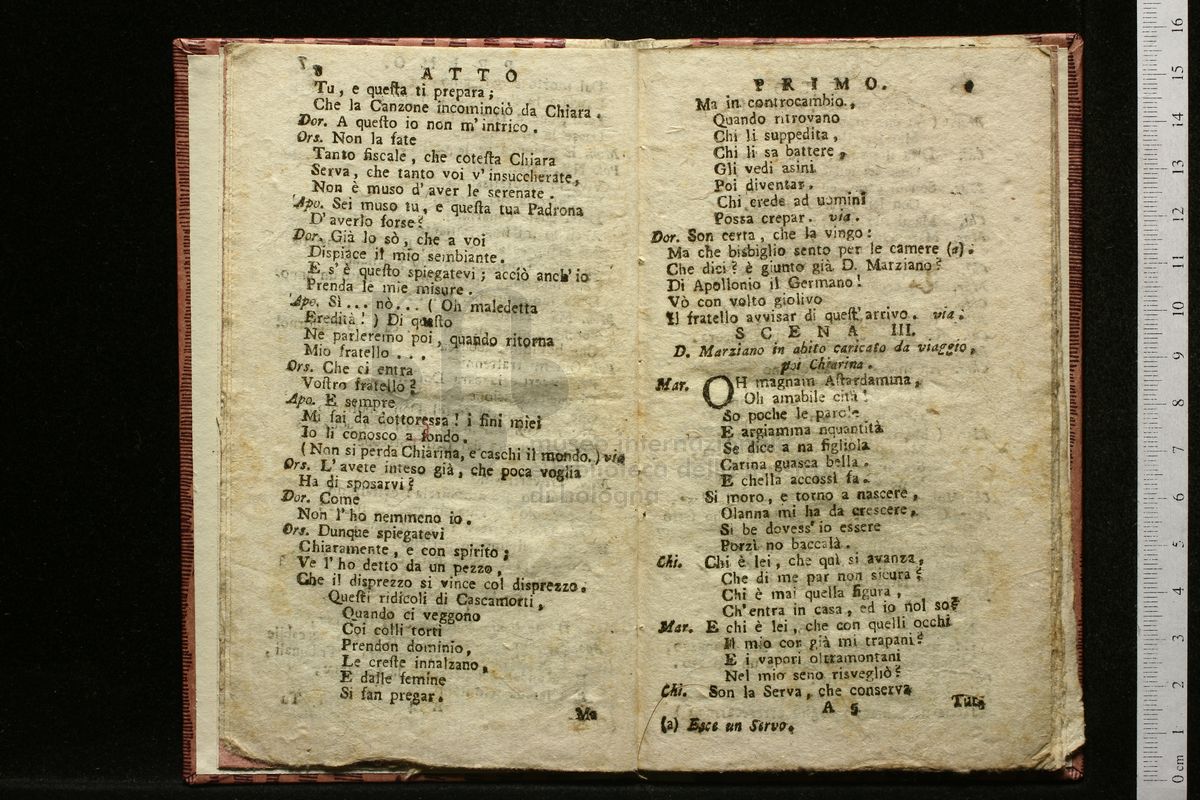 8 ATTO
Tu, e questa ti prepara;
Che la Canzone incominciò da Chiara.
Dor. A questo io non m'intrico.
Ors. Non la fate
Tanto fiscale, che cotesta Chiara
Serva, che tanto voi v'insuccherate,
Non è muso d'aver le serenate.
Apo. Sei muso tu, e questa tua Padrona
D'averlo forse?
Dor. Già lo sò, che a voi
Dispiace il mio sembiante.
E s'è questo spiegatevi; acciò anch'io
Prenda le mie misure.
Apo. Sì... nò... (Oh maledetta
Eredità!) Di questo
Ne parleremo poi, quando ritorna
Mio fratello...
Ors. Che ci entra
Vostro fratello?
Apo. E sempre
Mi fai da dottoressa! i fini miei
Io li conosco a fondo.
(Non si perda Chiarina, e caschi il mondo.) via
Ors. L'avete inteso già, che poca voglia
Ha di sposarvi?
Dor. Come
Non l'ho nemmeno io.
Ors. Dunque spiegatevi
Chiaramente, e con spirito;
Ve l'ho detto da un pezzo,
Che il disprezzo si vince col disprezzo.
Questi ridicoli di Cascamorti,
Quando ci veggono
Coi colli torti
Prendon dominio,
Le creste innalzano,
E dalle femine
Si fan pregar.
Ma
PRIMO. 9
Ma in controcambio,
Quando ritrovano
Chi li suppedita,
Chi li sa battere,
Gli vedi asini
Poi diventar.
Chi crede ad uomini
Possa crepar. via.
Dor. Son certa, che la vingo:
Ma che bisbiglio sento per le camere (a).
Che dici? è giunto già D. Marziano?
Di Apollonio il Germano!
Vò con volto giolivo
Il fratello avvisar di quest'arrivo. via.
SCENA III.
D. Marziano in abito caricato da viaggio,
poi Chiarina.
Mar. OH magnam Astardamma,
Oh amabile cità!
So poche le parole
E argiamma nquantità
Se dice a na figliola
Carina guasca bella.
E chella accossì fa.
Si moro, e torno a nascere,
Olanna mi ha da crescere,
Si be dovess'io essere
Porzì no baccalà.
Chi. Chi è lei, che quì si avanza,
Che di me par non sicura?
Chi è mai quella figura,
Ch'entra in casa, ed io nol so?
Mar. E chi è lei, che con quelli occhi
Il mio cor già mi trapani?
E i vapori oltramontani
Nel mio seno risvegliò?
Chi. Son la Serva, che conserva
A 5 Tut-
(a) Esce un Servo.